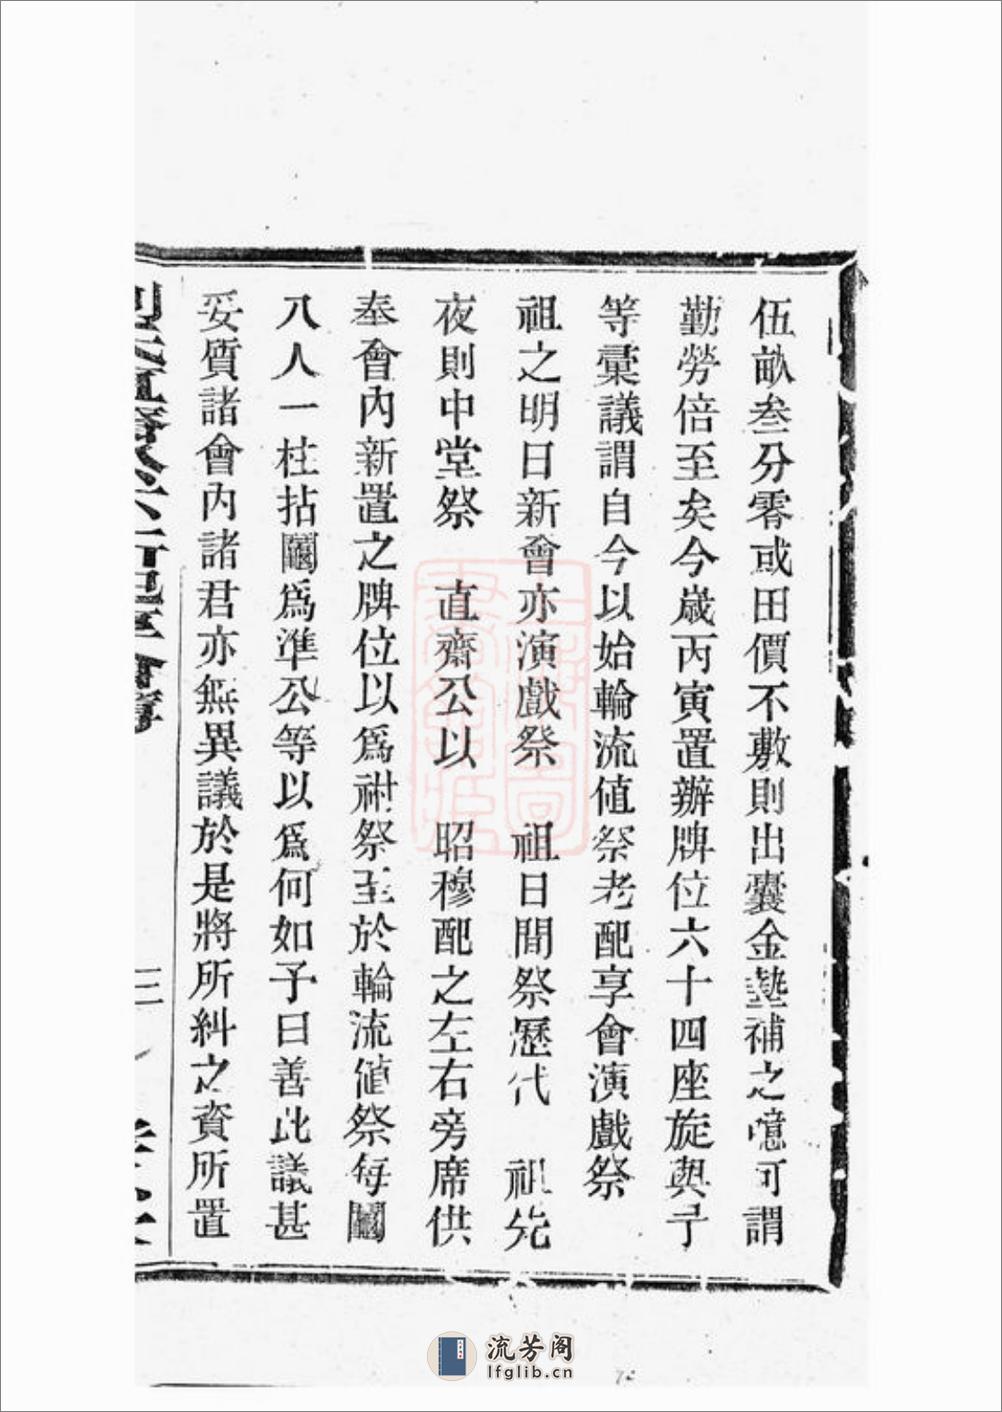 伍畝叁分零或田價不敷則出囊金墊補之噫可謂
勤勞倍至矣今歲丙寅置辦牌位六十四座旋與予
等彙議謂自今以始輪流値祭老配享會演戲祭
祖之明日新會亦演戲祭 祖日間祭歷代 祖先
夜則中堂祭 直齋公以 昭穆配之左右旁席供
奉會內新置之牌位以爲祔祭至於輪流値祭每鬮
八人一柱拈鬮爲準公等以爲何如予曰善此議甚
妥質諸會內諸君亦無異議於是將所糾之資所置
三
流芳阁
lfglib.cn